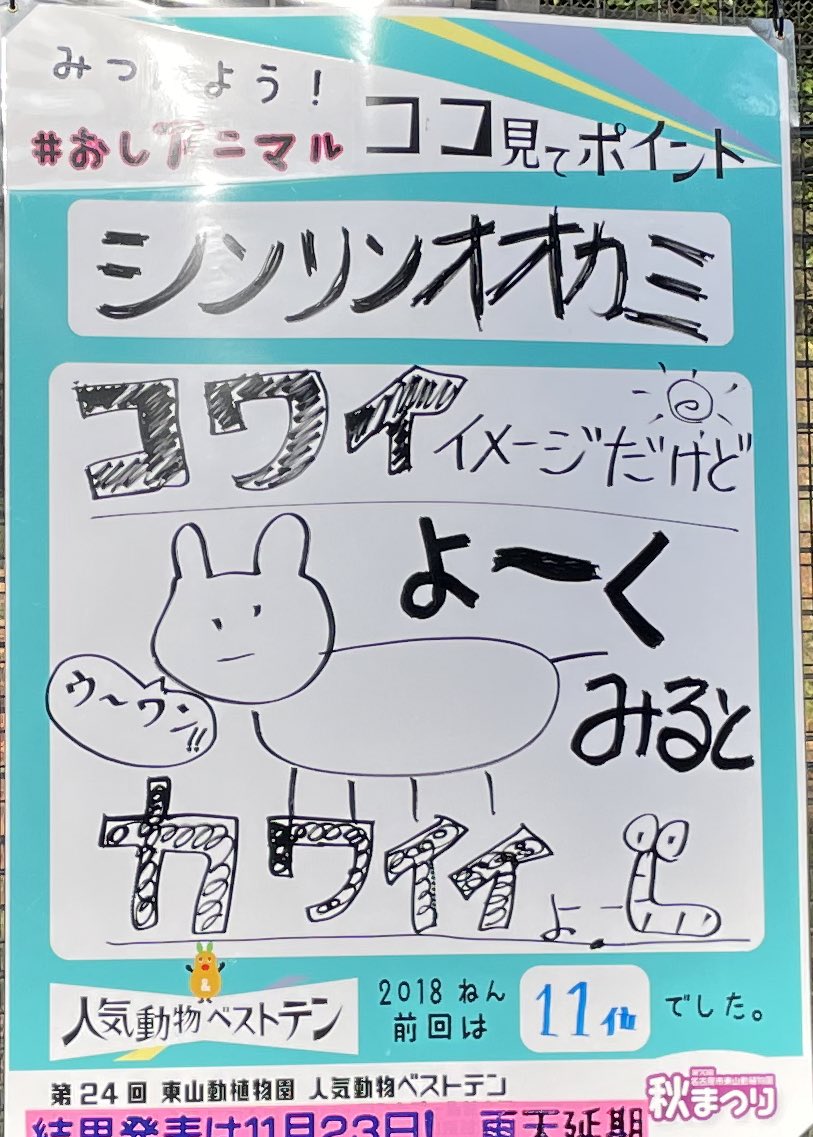 みつけよう!
#おしアニマル ココ見てポイント
シンリンオオカミ
コワイイメージだけど
よーく
みると
ウ〜ワン!!
カワイイよー
&
人気動物ベストテン
2018ねん
前回は
11位
でした。
第24回 東山動植物園 人気動物ベストテン
名古屋市東山動植物園
秋まつり
結果発表は11月23日! 雨天延期